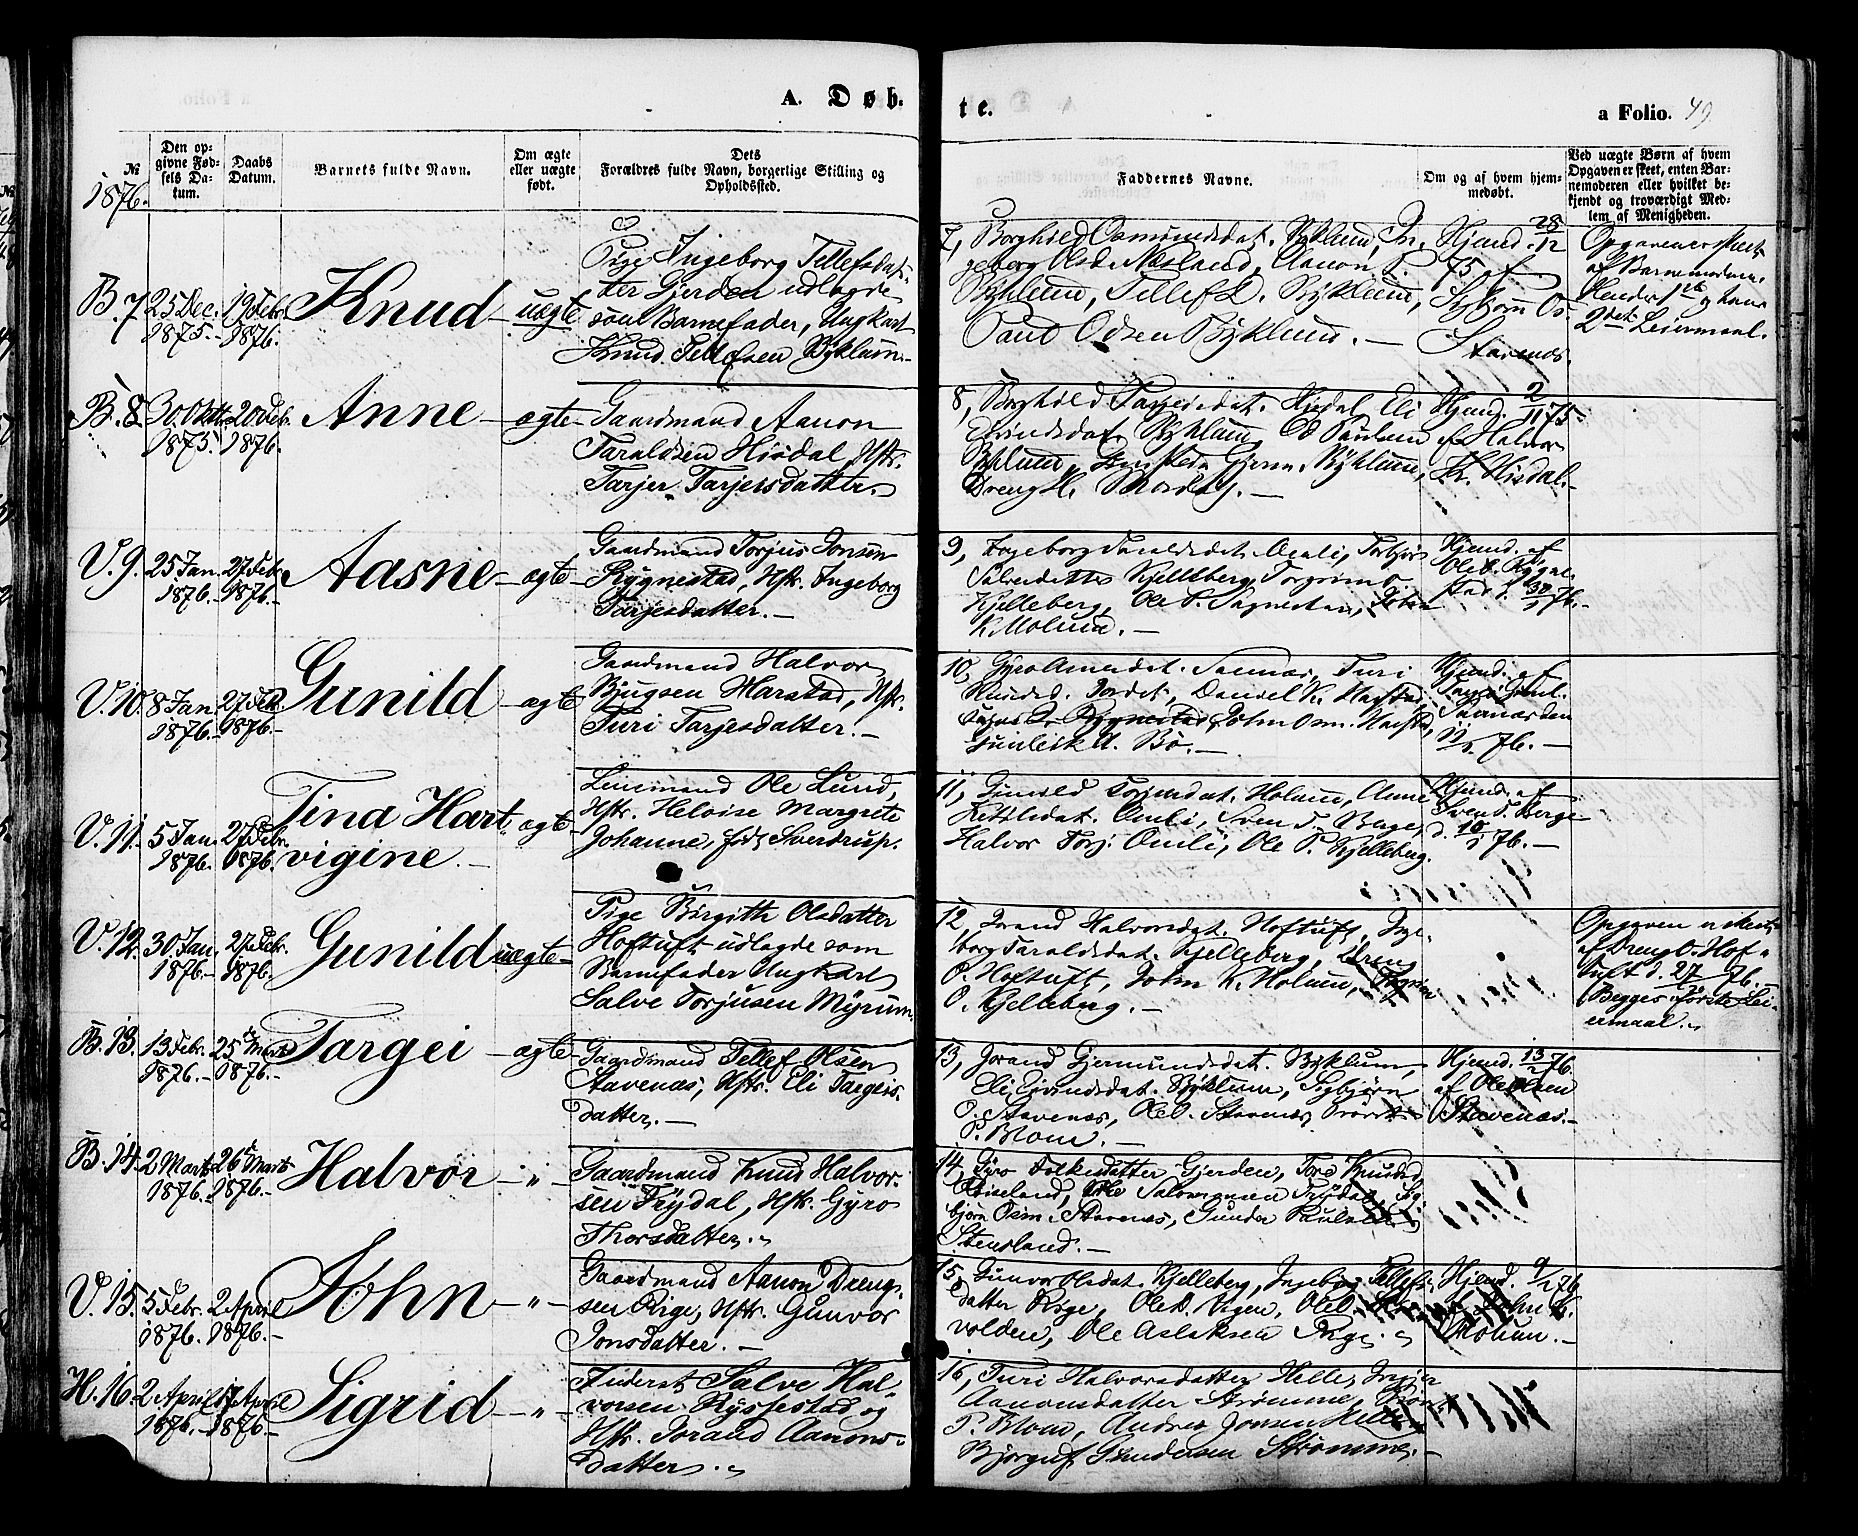 A. Døb-
te.
a Folio. 49
№
1876.
Den op-
givne Fød-
sels Da-
tum.
Daabs
Datum.
Barnets fulde Navn.
Om ægte
eller uægte
født.
Dets
Forældres fulde Navn, borgerlige Stilling og
Opholdssted.
Faddernes Navne.
Om og af hvem hjem-
medøbt.
Ved uægte Børn af hvem
Opgaven er skeet, enten Bar-
nemoderen eller hvilket be-
kjendt og troværdigt Med-
lem af Menigheden.
B. 7. 25 Dec. 1875. 19 Febr. 1876. Knud uægte
Pige Ingeborg Tellefsdat-
ter Gjerden udlagde
som Barnefader, Ungkarl
Knud Tellefsen Byklum.
7, Borghild Osmundsdat. Byklum, In-
geborg Olsd. Næsland, Aanon
Byklum, Tellef D. Byklum,
Paul Olsen Byklum.
Hjemd. 28/12
75 af
Sigbjørn Os.
Stavenæs.
Opgaven er skeet
af Barnemoderen.
Hendes 1ste og hans
2det Leiermaal.
B. 8. 30. Oktb. 1875. 20 Febr. 1876. Anne ægte
Gaardmand Aanon
Taraldsen Hisdal, Hstr.
Tarjer Tarjeisdatter.
8, Borghild Tarjeisdat. Hisdal, Eli
Eivindsdat. Byklum, Od Paulsen
Byklum, Byklum,
Dreng H. Mosdøl.
Hjemd. 2/11 75
af Halvor
Hisdal.
V. 9. 25 Jan. 1876. 27 Febr. 1876. Aasne ægte
Gaardmand Torjus Jonsen
Rygnestad, Hstr. Ingeborg
Tarjesdatter.
9, Ingeborg Taraldsdat. Omli,
Salvesdatter Kjelleberg,
Kjelleberg, Ole
K. Molum.
Hjemd. af
Ole Rygne-
stad d. 30/1 76.
V. 10. 8 Jan. 1876. 27 Febr. 1876. Gunild ægte
Gaardmand Halvor
Bjugsen Harstad, Hstr.
Turi Tarjesdatter.
10, Gyro Amundsdat. Turi
Daniel K. Harstad
Rygnestad, John Osm. Harstad,
Gunleik A. Bø.
Hjemd. af
den
11/1 76.
V. 11. 5 Jan. 1876. 27 Febr. 1876. Tina Hart-
vigine. ægte
Lensmand Ole Lund,
Hstr. Heloise Margrete
Johanne, født Sverdrup.
11, Gunild Torjusdat. Holum, Anne
Kittilsdat. Omli, Sven T. Berge,
Halvor Torj. Omli, Ole P. Kjelleberg.
Hjemd. af
Sven T. Berge
d. 10/1 76.
V. 12. 30 Jan. 1876. 27 Febr. 1876. Gunild uægte
Pige Birgitte Olsdatter
Hoftuft udlagde som
Barnefader Ungkarl
Salve Torjusen Myrum.
12, Jorand Halvorsdat. Hoftuft, Inge-
borg Taraldsdat. Kjelleberg, Dreng
O. Hoftuft, John K. Holum,
O. Kjelleberg.
Opgaven er skeet
af Dreng O. Hof-
tuft d. 27/2 76.
Begges første Lei-
ermaal.
B. 13. 13 Febr. 1876. 25de Marts 1876. Targei ægte
Gaardmand Tellef Olsen
Stavenæs, Hstr. Eli Targeis-
datter.
13, Jorand Gjermundsdat. Byklum,
Eli Eivindsdat. Byklum, Sigbjørn
O. Stavenæs, Ole O. Stavenæs,
P. Blom.
Hjemd. 13/2 76.
af Ole Olsen
Stavenæs.
B. 14. 2 Marts 1876. 26de Marts 1876. Halvor "
Gaardmand Knud Halvor-
sen Trydal, Hstr. Gyro
Thorsdatter.
14, Gyro Folkesdatter Gjerden, Tore Knudsd.
Hoiseland, Ole Salomonsen Trydal, Sig-
bjørn Osm. Stavenæs, Gunder Paulsen
Stensland.
V. 15. 5 Febr. 1876. 2 April 1876. John "
Gaardmand Aanon Dreng-
sen Rige, Hstr. Gunvor
Jonsdatter.
15, Gunvor Olsdat. Kjelleberg, Ingeborg Tellefs-
datter Rige, Ole D. Vigen, Ole O.
volden, Ole Aslaksen Rige.
Hjemd. 9/2 76
af John K.
Holum.
H. 16. 2 April 1876. 17 April 1876. Sigrid "
Inderst Salve Hal-
vorsen Rysstad og
Hstr. Jorand Aanons-
datter.
16, Turi Halvorsdatter Helle,
Aanonsdatter Strømme,
P. Blom, Andres Jonsen Helle,
Bjørguf Gundersen Strømme.